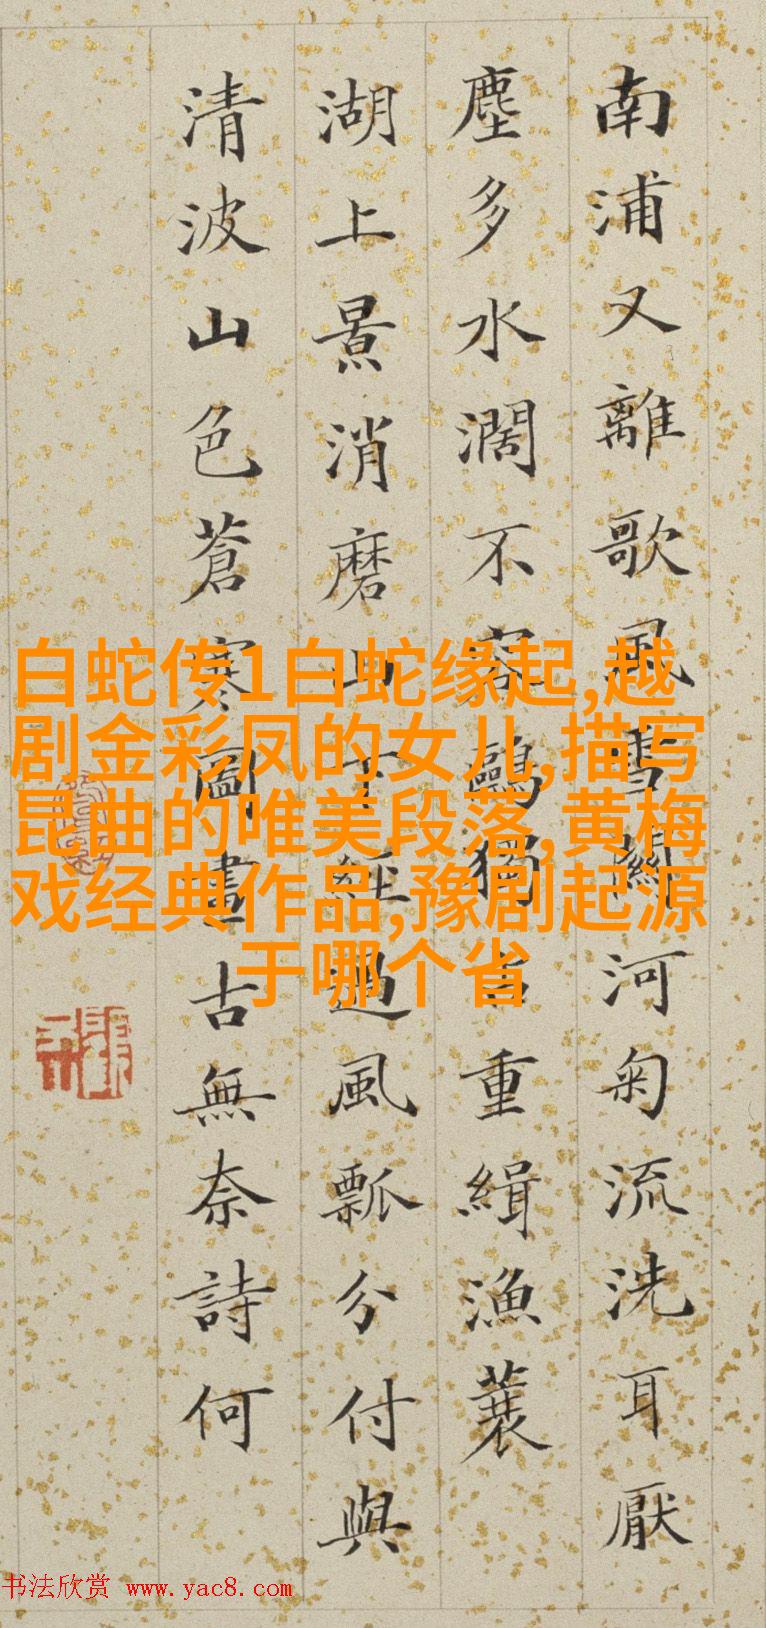 南浦又離歌風雪關河匊流洗耳厭
塵多水濶不容鷗獨占重緝漁蓑
湖上景消磨山下經過風瓢分付與
清波山色蒼寒圖畫古無奈詩何
白蛇传1白蛇缘起,越
剧金彩凤的女儿,描写
昆曲的唯美段落,黄梅
戏经典作品,豫剧起源
于哪个省
书法欣赏 www.yac8.com